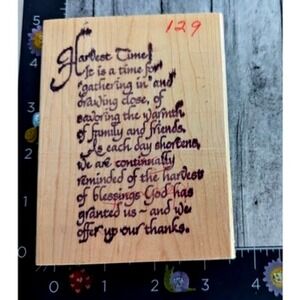 129
Harvest Time!
It is a time for
"gathering in" and
drawing close, of
savoring the warmth
of family and friends.
As each day shortens,
we are continually
reminded of the harvest
of blessings God has
granted us ~ and we
offer up our thanks.
4
3
2
1
0
0
1
2
3